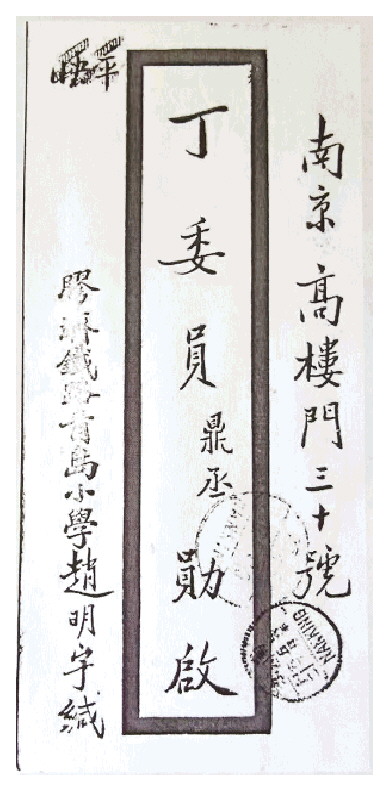 南京高樓門三十號
丁委員鼎丞勛啟
膠濟鐵路青島小學趙明宇緘
NANKING